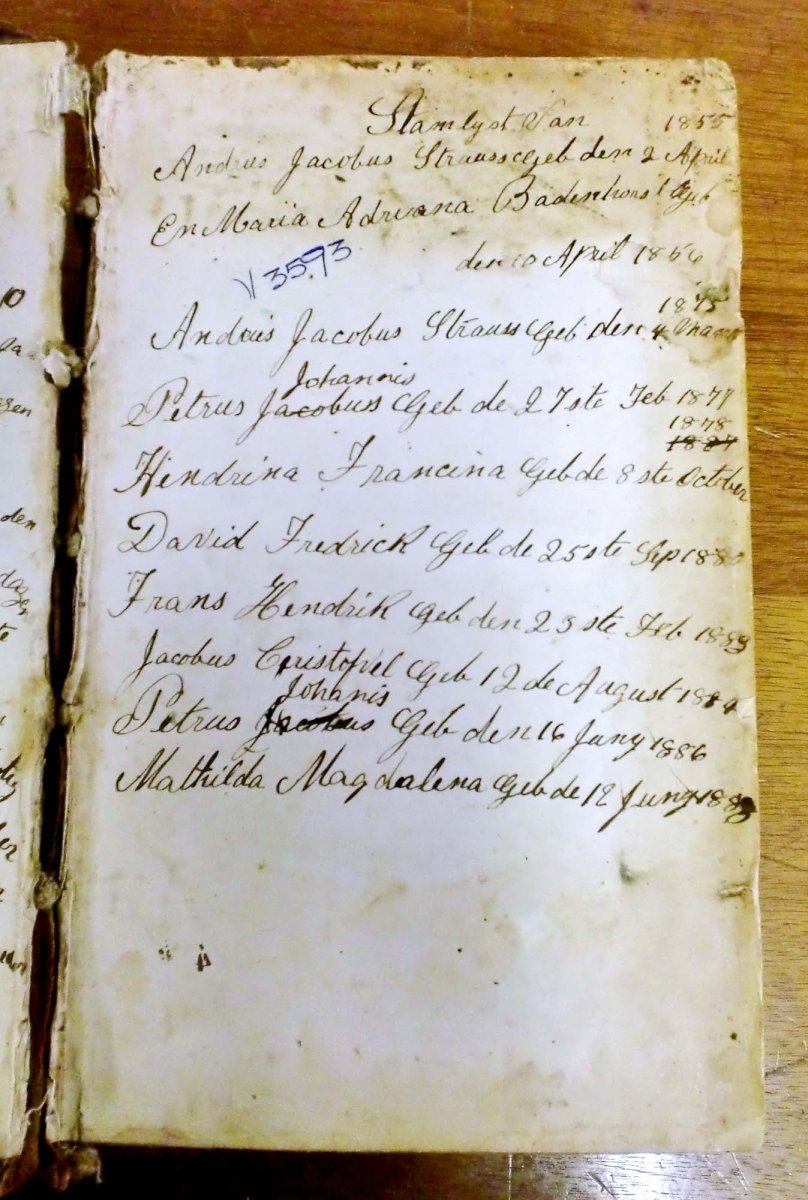 Stamlyst Van 1855
Andries Jacobus Strauss Geb den 2 April
En Maria Adriana Badenhorst Geb
den 10 April 1856
V 3593
1875
Andries Jacobus Strauss Geb den 4
Johannis
Petrus Jacobuss Geb de 27ste Feb 1877
1878
Hendrina Francina Geb de 8ste October
David Fredrick Geb de 25ste Sep
Frans Hendrik Geb den 23ste Feb
Jacobus Cristoffel Geb 12 de August 1884
Johanis
Petrus Jacobus Geb den 16 Juny 1886
Mathilda Magdalena Geb de 12 Juny
10
den
te